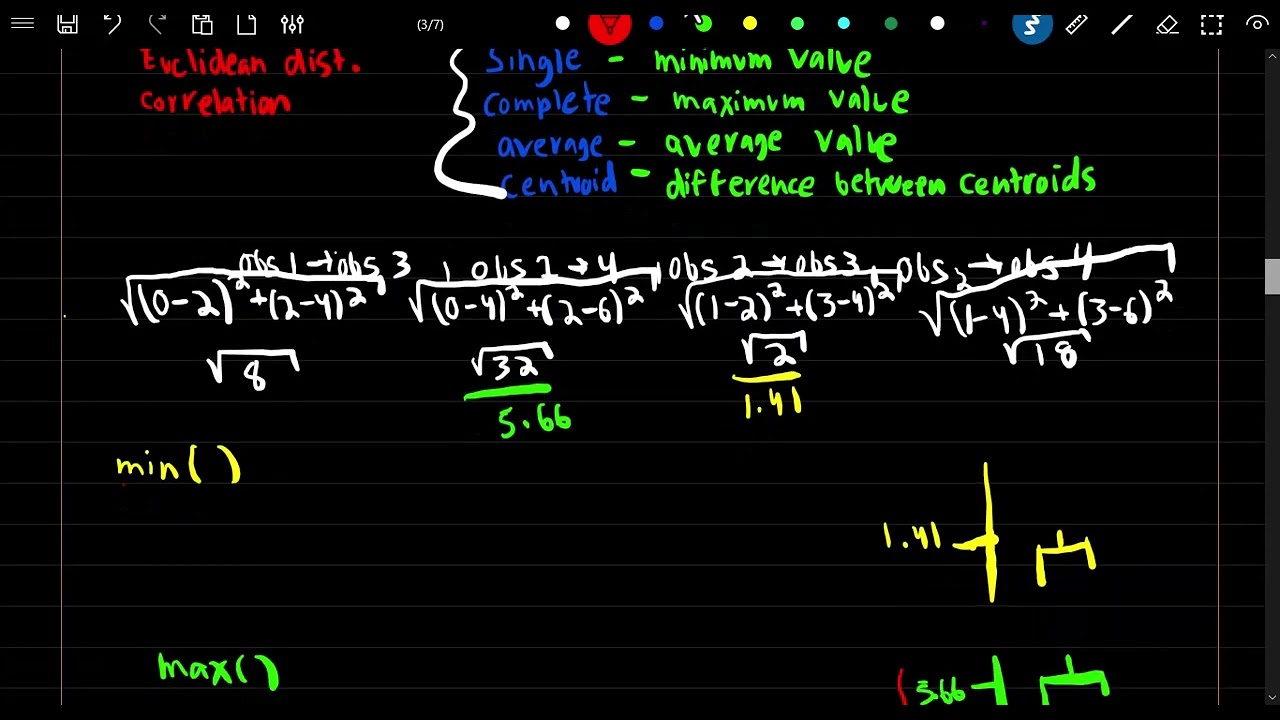 (3/7)
Euclidean dist.
correlation
Single - minimum value
complete - maximum value
average - average value
centroid - difference between centroids
obs 1 → obs 3
obs 1 → 4
obs 2 → obs 3
obs 2 → obs 4
√(0-2)²+(2-4)²
√(0-4)²+(2-6)²
√(1-2)²+(3-4)²
√(1-4)²+(3-6)²
√8
√32
√2
√18
5.66
1.41
min()
1.41
max()
5.66